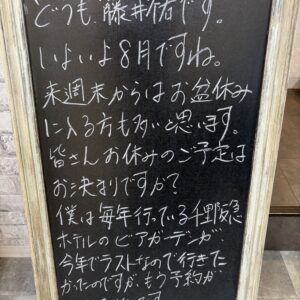 どうも、藤井佑です。
いよいよ8月ですね。
来週末からはお盆休み
に入る方も多いと思います。
皆さんお休みのご予定は
お決まりですか?
僕は毎年行っている千里阪急
ホテルのビアガーデンが
今年でラストなので行きた
かったのですが、もう予約が